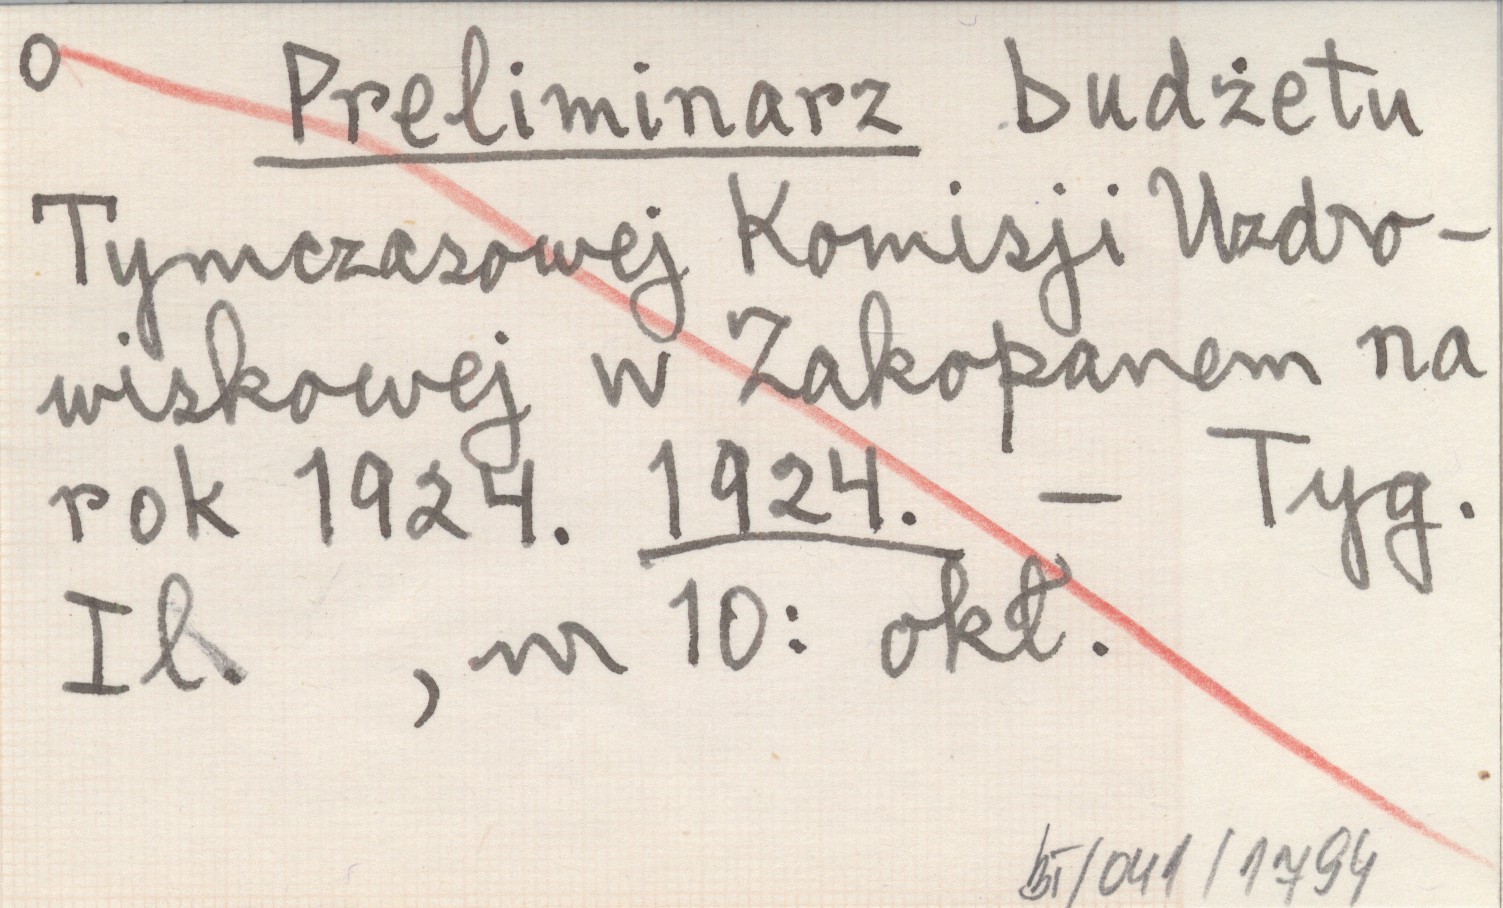 o Preliminarz budżetu
Tymczasowej Komisji Uzdro-
wiskowej w Zakopanem na
rok 1924. 1924. — Tyg.
Il. , nr 10: okł.
/041/1794